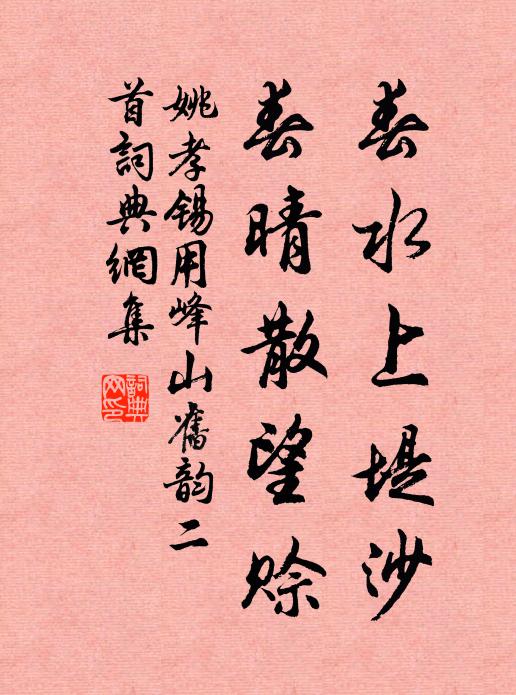 春水上堤沙
春晴散望賒
姚孝錫用峰山舊韵二
首詞典網集
詞典網印